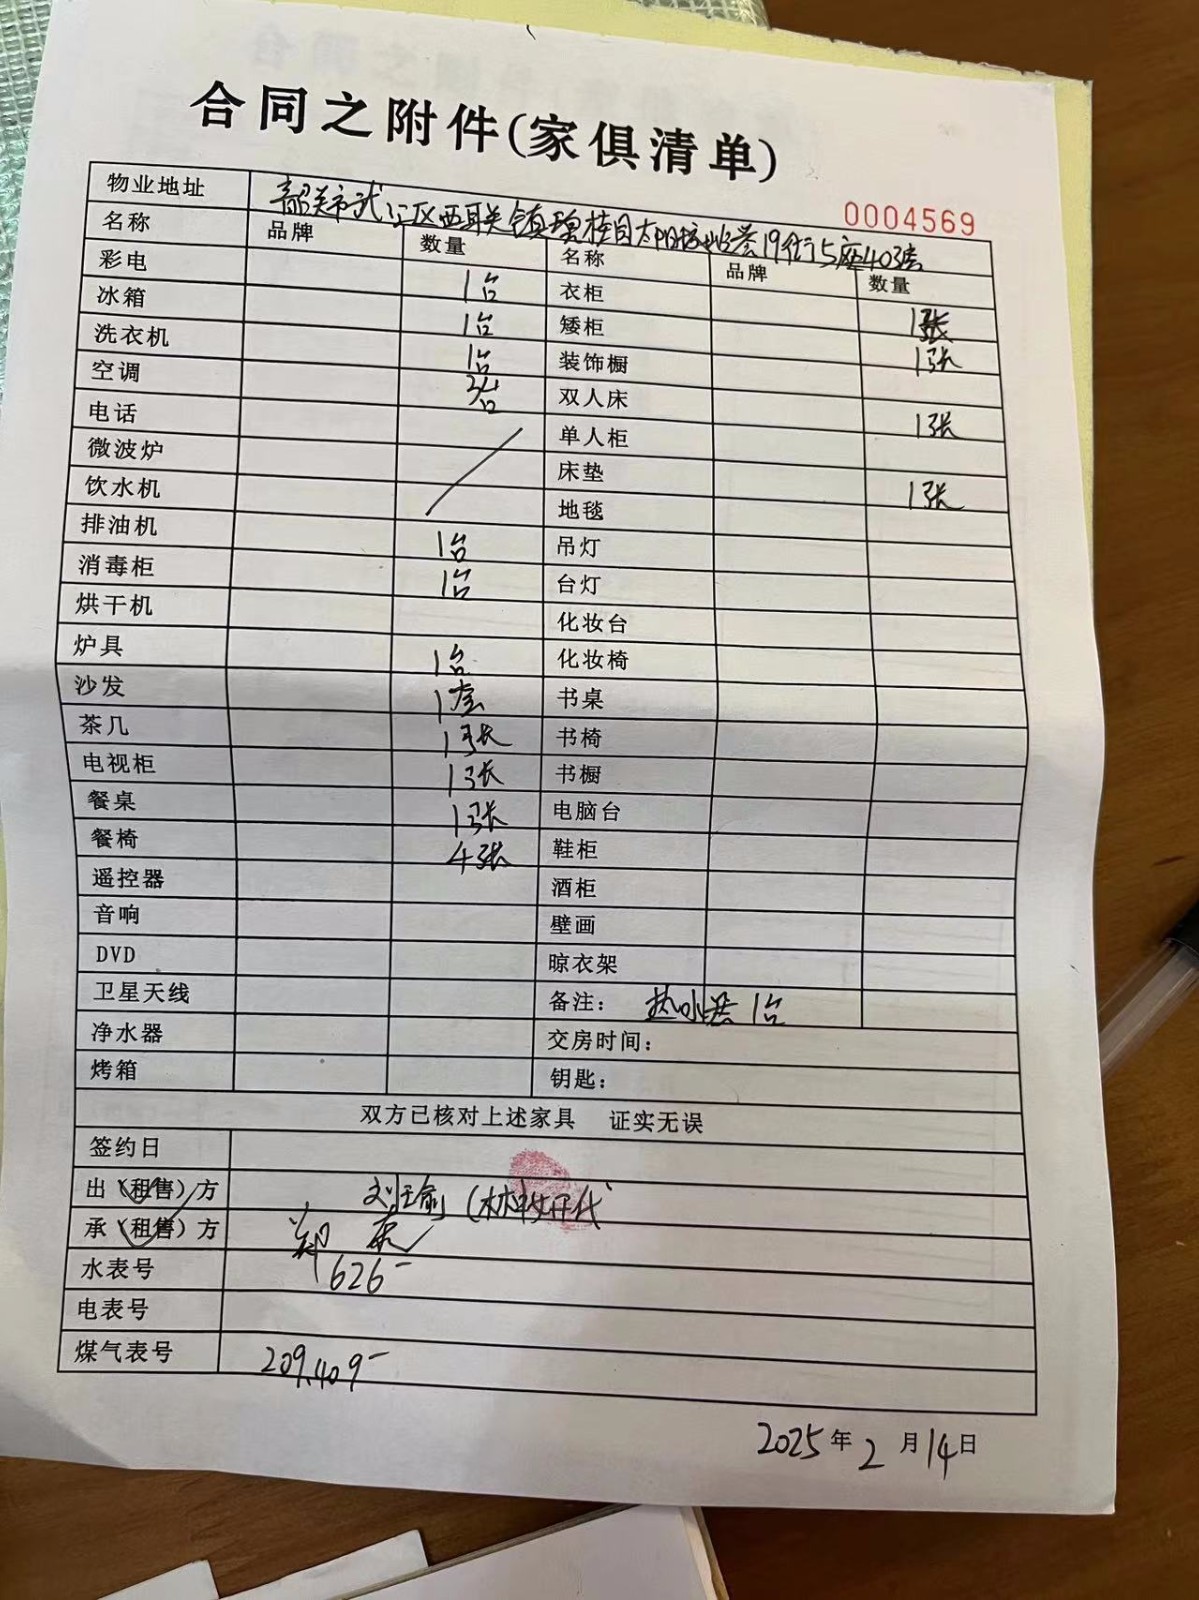 合同之附件(家俱清单)
0004569
物业地址 韶关市武江区西联镇碧桂园太阳城 19街5座403
名称 品牌 数量 名称 品牌 数量
彩电 1台 衣柜 1张
冰箱 1台 矮柜 1张
洗衣机 1台 装饰橱
空调 3台 双人床 1张
电话 单人柜
微波炉 床垫 1张
饮水机 地毯
排油机 1台 吊灯
消毒柜 1台 台灯
烘干机 化妆台
炉具 1台 化妆椅
沙发 1套 书桌
茶几 1张 书椅
电视柜 1张 书橱
餐桌 1张 电脑台
餐椅 4张 鞋柜
遥控器 酒柜
音响 壁画
DVD 晾衣架
卫星天线 备注： 热水器1台
净水器 交房时间：
烤箱 钥匙：
双方已核对上述家具 证实无误
签约日
出（租售）方 刘 (林 代
承（租售）方 郑
水表号 626
电表号
煤气表号 209.409
2025年2月14日